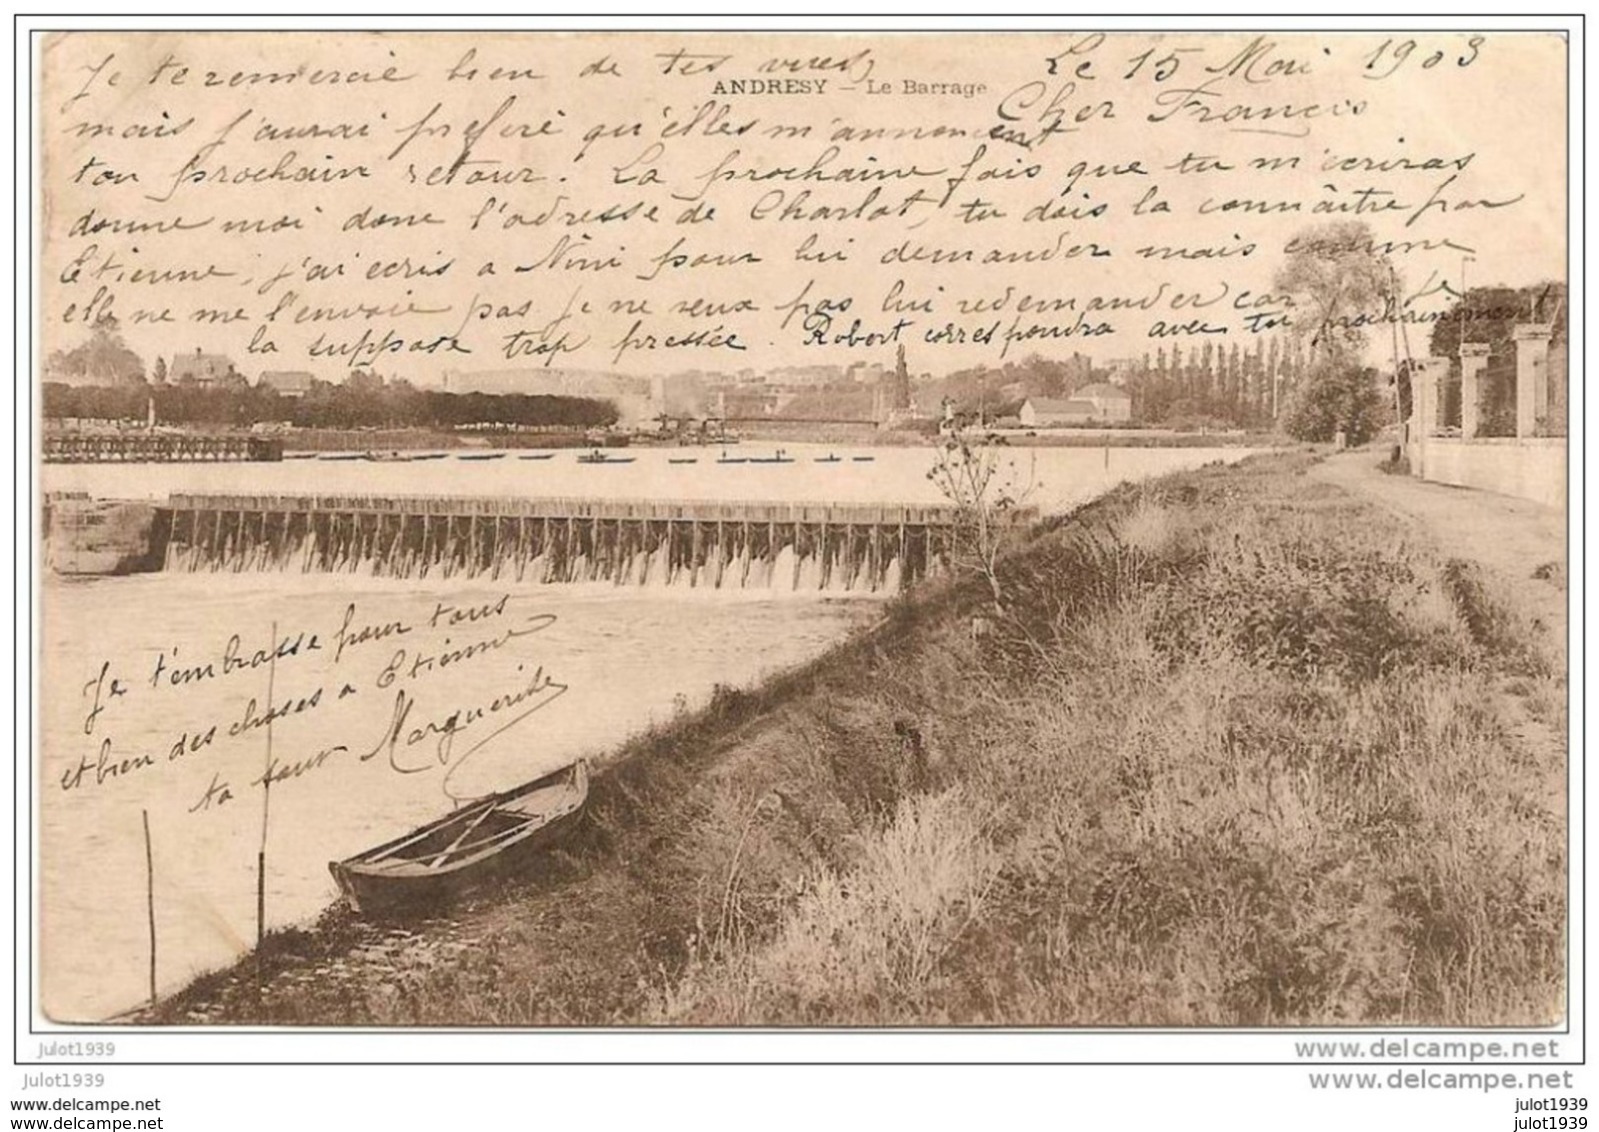 Le 15 Mai 1903
ANDRESY — Le Barrage
Cher Francis
Je te remercie bien de tes vues,
mais j'aurai preferé qu'elles m'annoncent
ton prochain retour. La prochaine fois que tu m'ecriras
donne moi donc l'adresse de Charlot, tu dois la connaître par
Etienne, j'ai ecris a Nini pour lui demander mais comme
elle ne me l'envoie pas je ne veux pas lui redemander car je
la suppose trop pressée. Robert correspondra avec toi prochainement
Je t'embrasse pour tous
et bien des choses a Etienne
ta sœur Marguerite
julot1939
www.delcampe.net
julot1939
www.delcampe.net
www.delcampe.net
julot1939
www.delcampe.net
julot1939